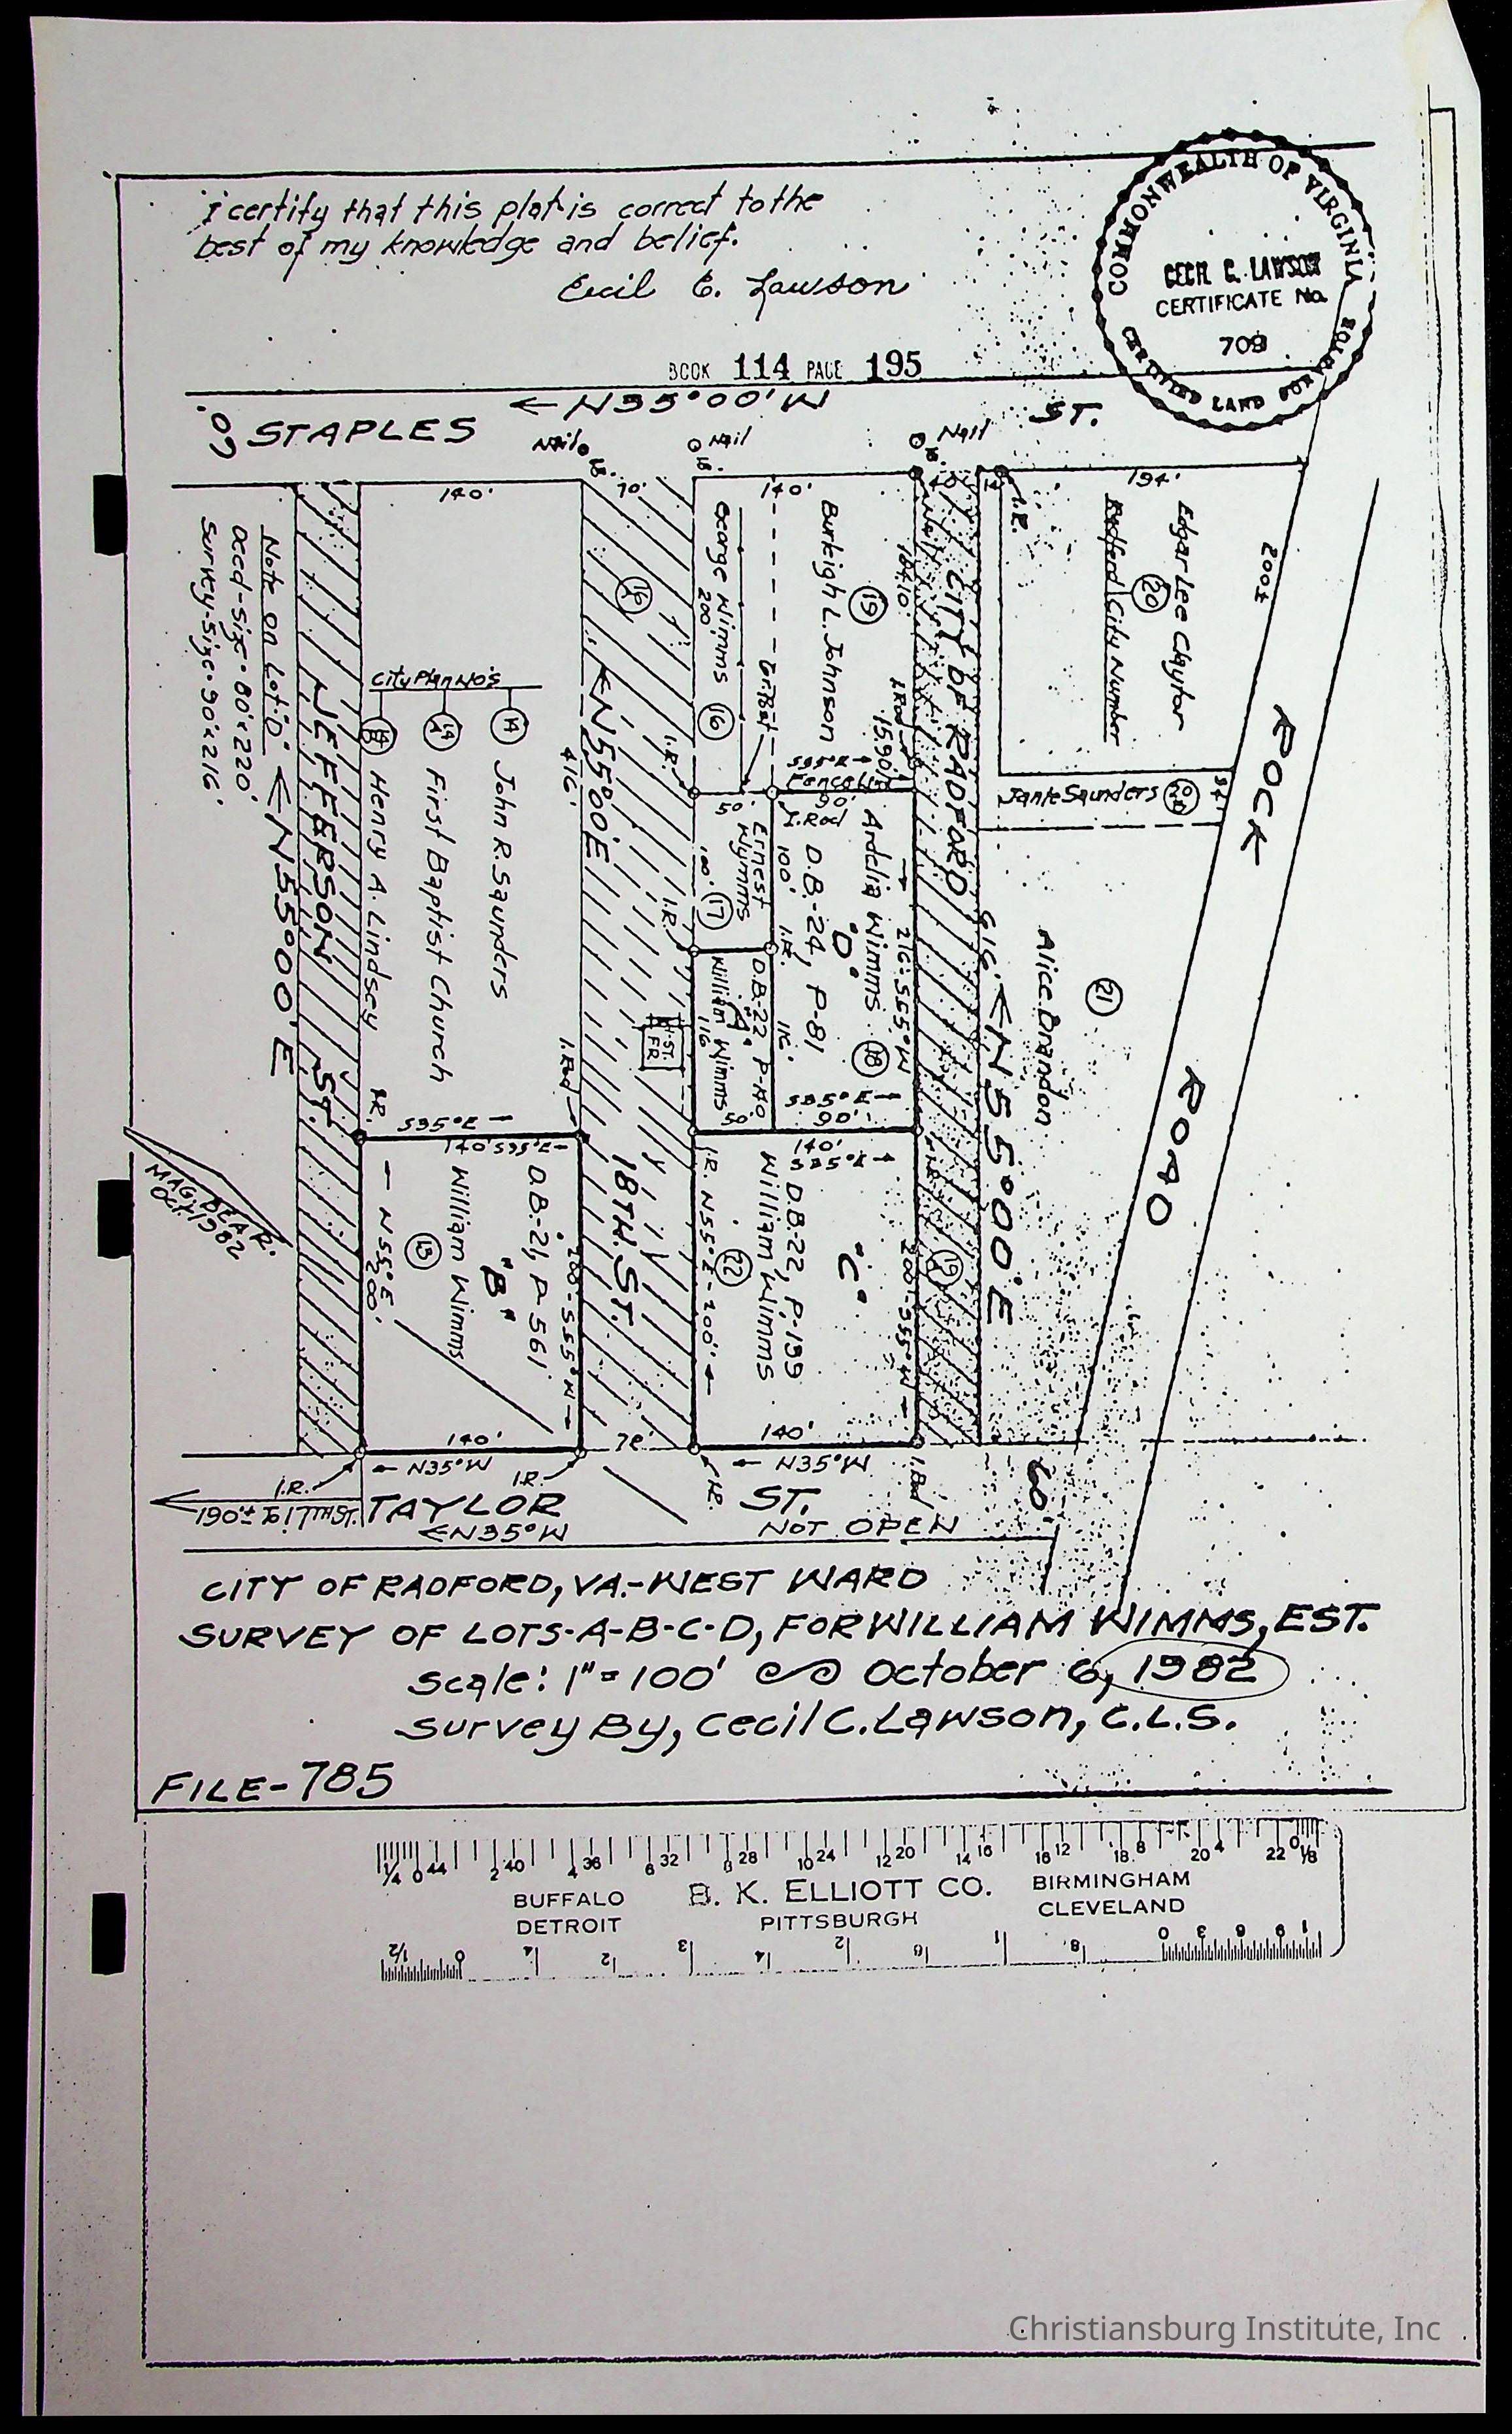 I certify that this plat is correct to the
best of my knowledge and belief.
Cecil C. Lawson
COMMONWEALTH OF VIRGINIA
CECIL C. LAWSON
CERTIFICATE No.
709
CERTIFIED LAND SURVEYOR
BOOK 114 PAGE 195
← N35°00'W
60'
STAPLES ST.
Nail
Nail
Nail
140'
70'
140'
40'
14'
194'
I.R.
Note on Lot "D".
Deed-Size-80'x220'
Survey-Size-90'x216'
← N55°00'E
JEFFERSON ST.
City Plan No's
14B Henry A. Lindsey
14A First Baptist Church
14 John R. Saunders
416'
← N55°00'E
16A
18TH. ST.
George Wimms
200
16
Burleigh L. Johnson
19
184.10'
I.Rod
15.90'
S35°E →
Fence Line
CITY OF RADFORD
Edgar Lee Claytor
20
Radford City Number
200±
Janie Saunders 20A
ROCK ROAD
50'
90'
I.R.
I.Rod
Ernest
Wymms
100'
17
100'
I.R.
I.R.
Ardelia Wimms
"D"
D.B.-24, P-81
18
216'-S55°W
116'
S35°E →
90'
D.B.-22 P-140
"A"
William Wimms
116
50'
1-ST.
FR.
616'
← N55°00'E
Alice Brandon
21
MAG. BEAR.
Oct. 1982
I.R.
S35°E →
I.Rod
140' S35°E →
← N55°E
200'
15
William Wimms
"B"
D.B.-21, P-561
200'-S55°W →
140'
S35°E →
I.R. N55°E-200'
22
William Wimms
D.B.22, P-139
"C"
200'-S55°W →
19A
140'
70'
140'
← N35°W
← N35°W
I.R.
I.R.
I.R.
I.Rod
60'
190'± To 17TH ST.
TAYLOR ST.
← N35°W
NOT OPEN
CITY OF RADFORD, VA.-WEST WARD
SURVEY OF LOTS-A-B-C-D, FOR WILLIAM WIMMS, EST.
Scale: 1"=100' October 6, 1982
Survey By, Cecil C. Lawson, C.L.S.
FILE-785
1/4 0 44 2 40 4 36 6 32 8 28 10 24 12 20 14 16 16 12 18 8 20 4 22 0 1/8
BUFFALO
DETROIT
B. K. ELLIOTT CO.
PITTSBURGH
BIRMINGHAM
CLEVELAND
Christiansburg Institute, Inc